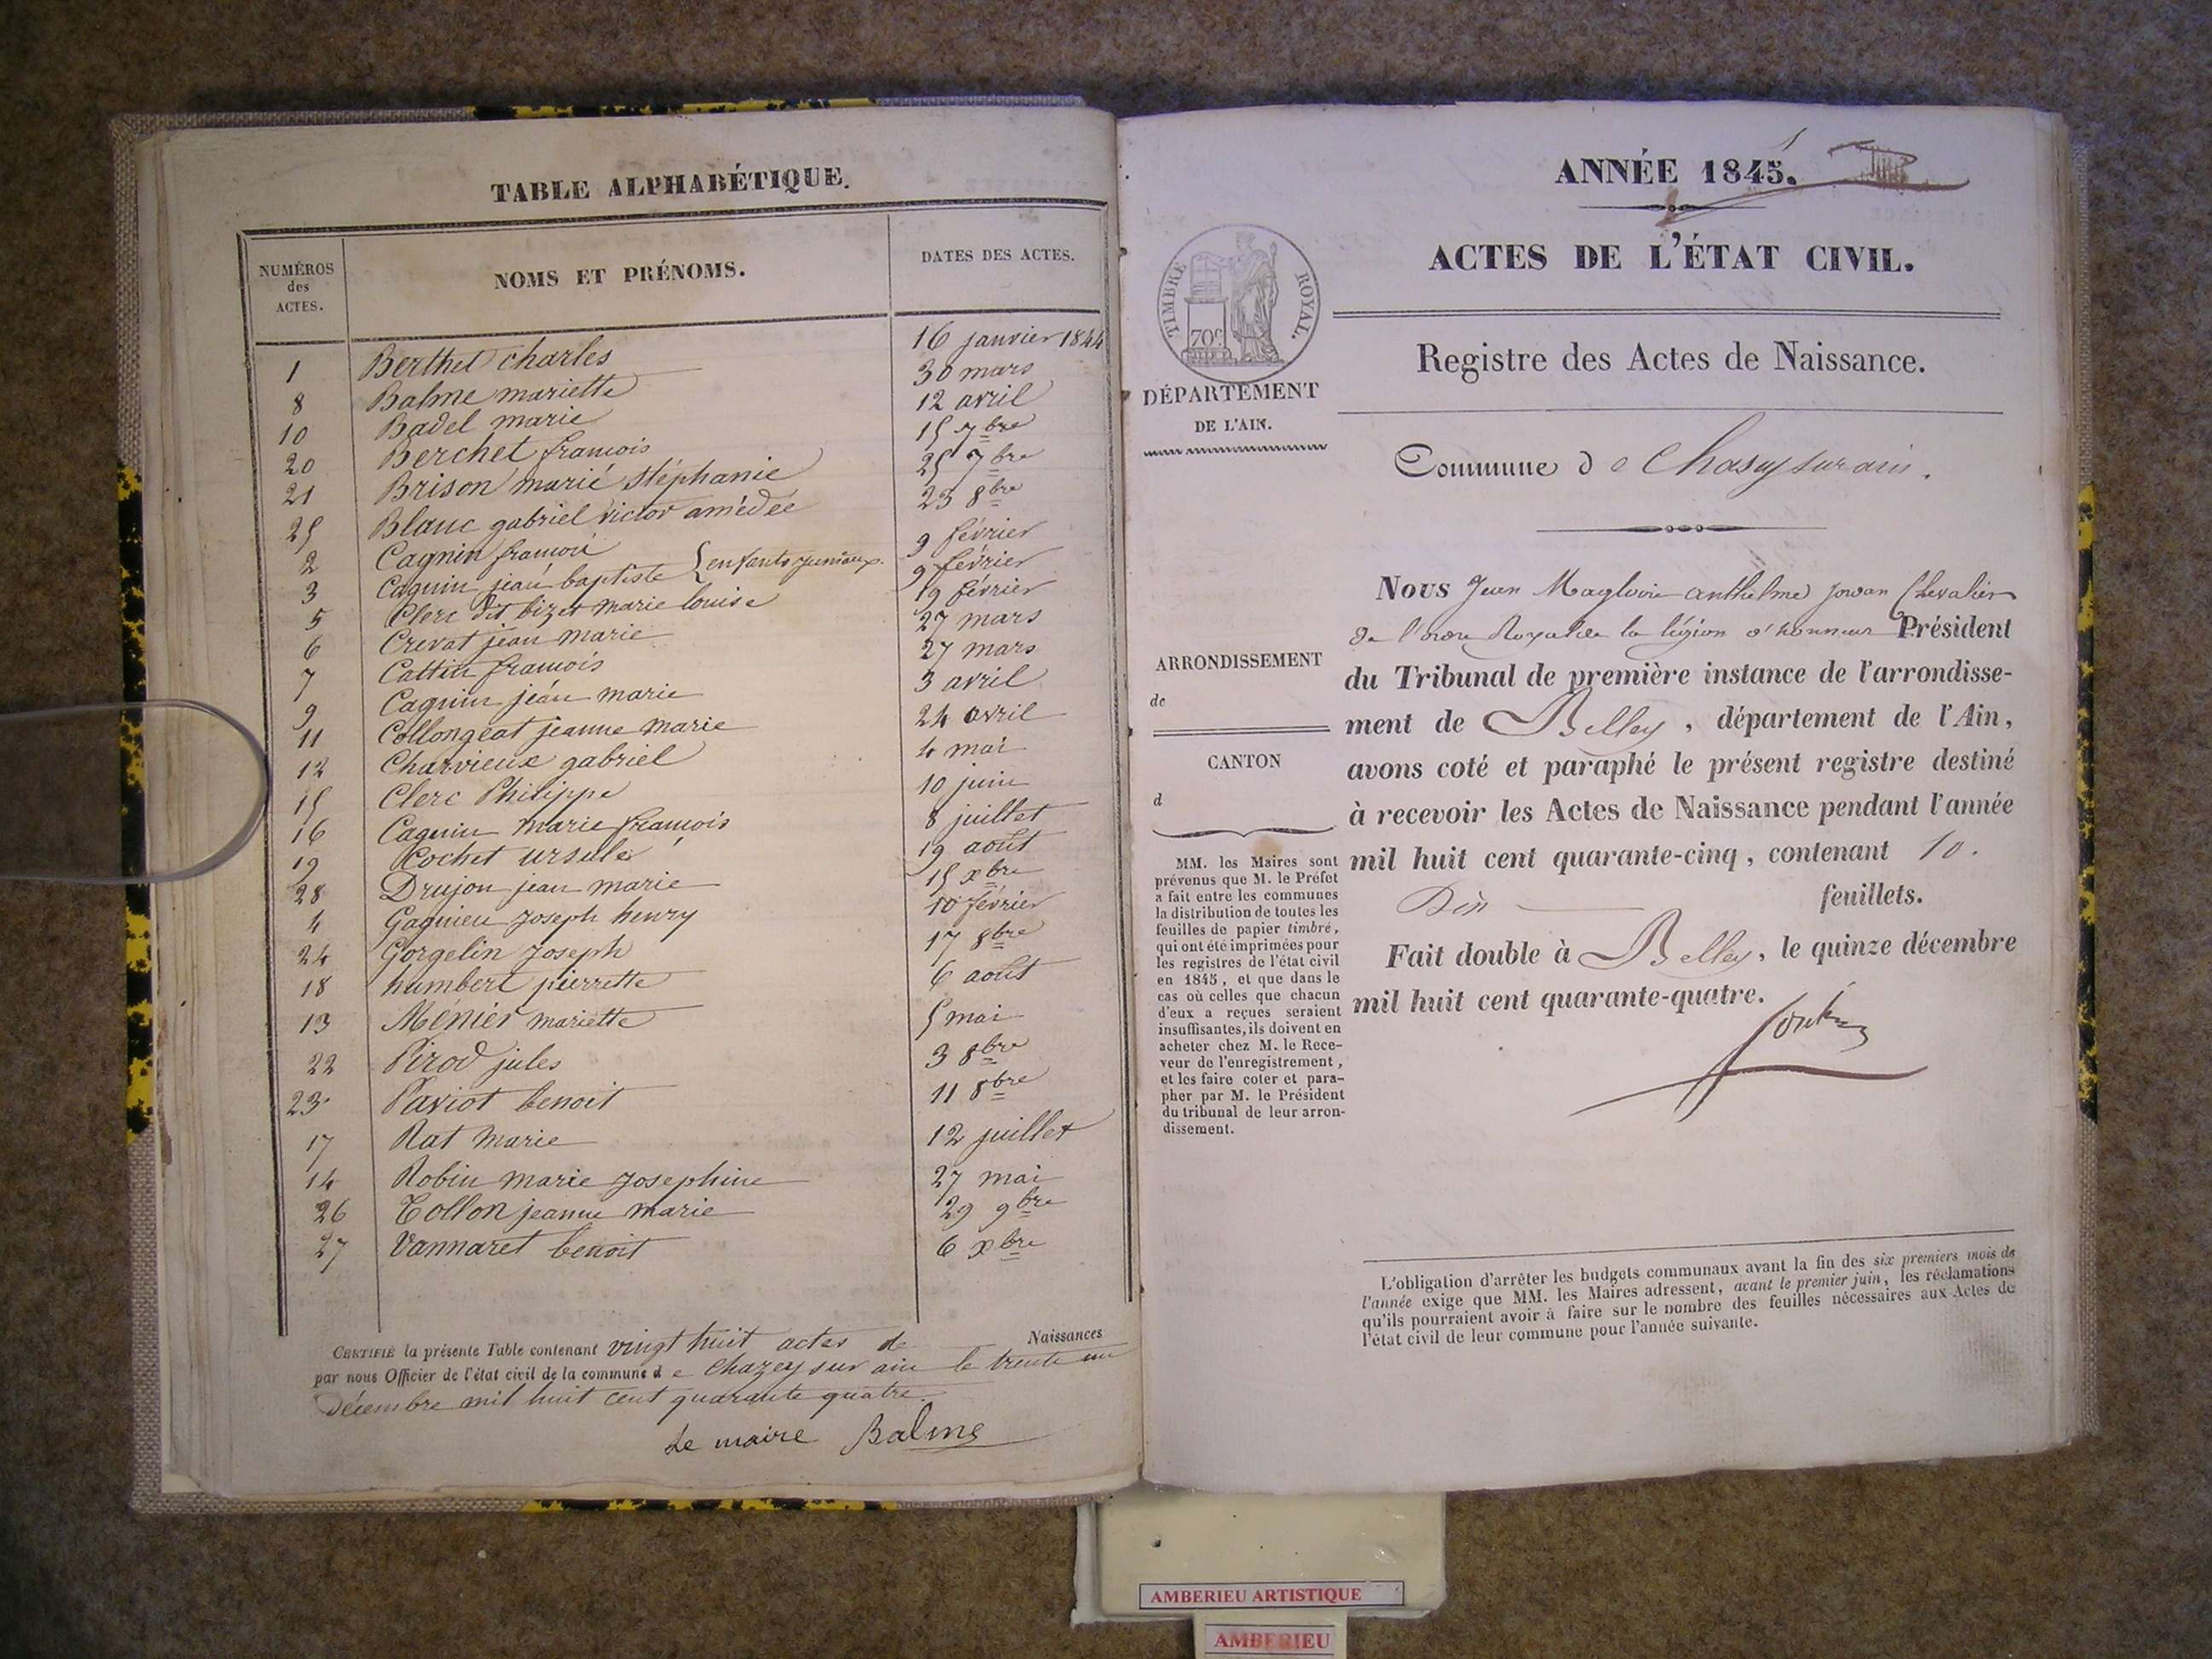 TABLE ALPHABÉTIQUE.
NUMÉROS des ACTES.
NOMS ET PRÉNOMS.
DATES DES ACTES.
1 Berthet charles 16 janvier 1844
8 Balme mariette 30 mars
10 Badel marie 12 avril
20 Berchet francois 15 7bre
21 Brison marie Stéphanie 25 7bre
25 Blanc gabriel victor amédée 23 8bre
2 Cagnin francois 9 février
3 Cagnin jean baptiste { enfants jumeaux. 9 février
5 Clerc dit bizet marie louise 19 février
6 Crevat jean marie 27 mars
7 Cattin francois 27 mars
9 Cagnin jean marie 3 avril
11 Collongeat jeanne marie 24 avril
12 Charvieux gabriel 4 mai
15 Clerc Philippe 10 juin
16 Cagnin marie francois 8 juillet
19 Cochet ursule 19 aout
28 Drujon jean marie 15 xbre
4 Gagnieu joseph henry 10 février
24 Gorgelin joseph 17 8bre
18 humbert pierrette 6 aout
13 Ménier mariette 5 mai
22 Pirod jules 3 8bre
23 Paviot benoit 11 8bre
17 Rat marie 12 juillet
14 Robin marie josephine 27 mai
26 Tollon jeanne marie 29 9bre
27 Vannaret benoit 6 xbre
CERTIFIÉ la présente Table contenant vingt huit actes de Naissances
par nous Officier de l'état civil de la commune de Chazey sur ain le trente un
décembre mil huit cent quarante quatre.
Le maire Balme
ANNÉE 1845.
ACTES DE L'ÉTAT CIVIL.
TIMBRE ROYAL.
70c
Registre des Actes de Naissance.
DÉPARTEMENT
DE L'AIN.
Commune de Chasey sur ain.
Nous Jean Magloire anthelme Chevalier
de l'ordre Royal de la légion d'honneur Président
ARRONDISSEMENT
de
du Tribunal de première instance de l'arrondisse-
ment de Belley, département de l'Ain,
CANTON
d
avons coté et paraphé le présent registre destiné
à recevoir les Actes de Naissance pendant l'année
mil huit cent quarante-cinq, contenant 10.
Dix feuillets.
Fait double à Belley, le quinze décembre
mil huit cent quarante-quatre.
MM. les Maires sont
prévenus que M. le Préfet
a fait entre les communes
la distribution de toutes les
feuilles de papier timbré,
qui ont été imprimées pour
les registres de l'état civil
en 1845, et que dans le
cas où celles que chacun
d'eux a reçues seraient
insuffisantes, ils doivent en
acheter chez M. le Rece-
veur de l'enregistrement,
et les faire coter et para-
pher par M. le Président
du tribunal de leur arron-
dissement.
L'obligation d'arrêter les budgets communaux avant la fin des six premiers mois de
l'année exige que MM. les Maires adressent, avant le premier juin, les réclamations
qu'ils pourraient avoir à faire sur le nombre des feuilles nécessaires aux Actes de
l'état civil de leur commune pour l'année suivante.
AMBERIEU ARTISTIQUE
AMBERIEU